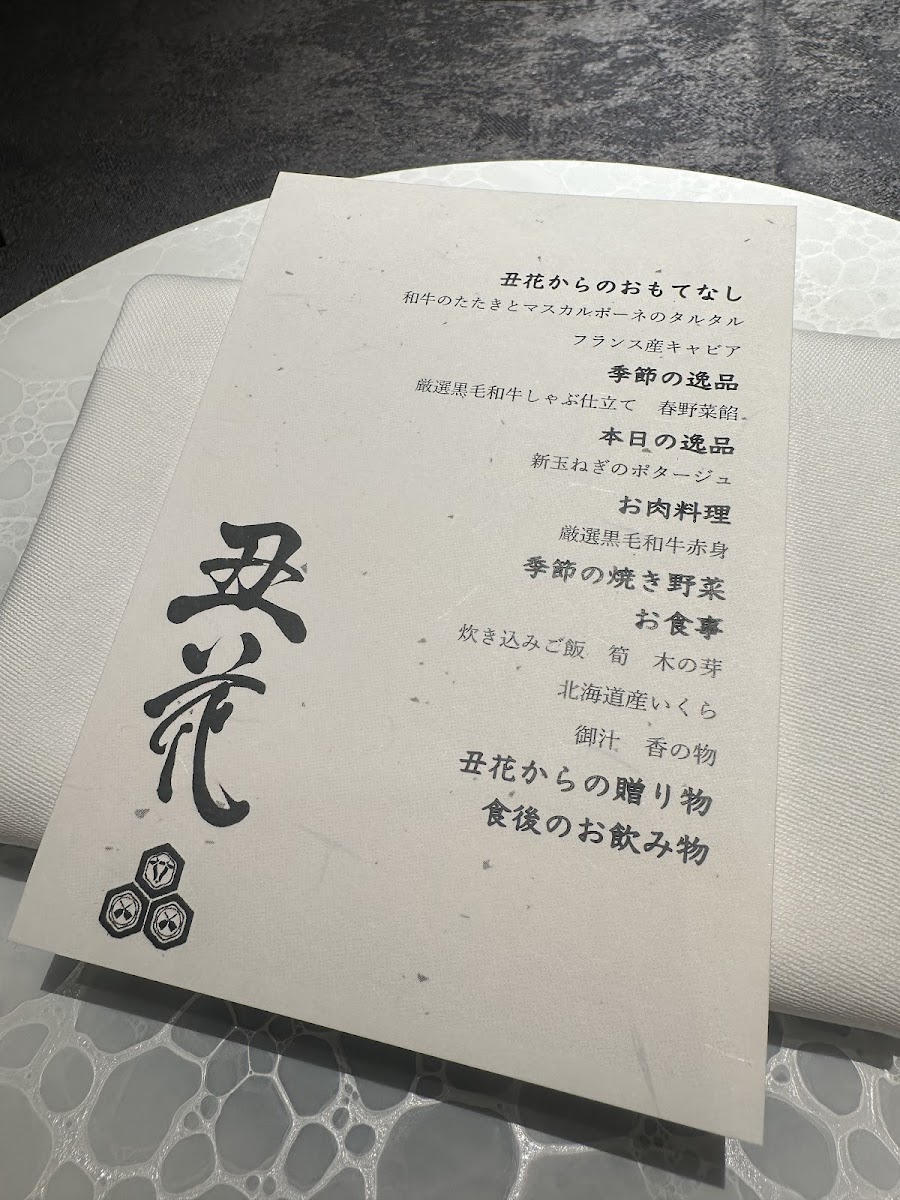 丑花からのおもてなし
和牛のたたきとマスカルポーネのタルタル
フランス産キャビア
季節の逸品
厳選黒毛和牛しゃぶ仕立て　春野菜餡
本日の逸品
新玉ねぎのポタージュ
お肉料理
厳選黒毛和牛赤身
季節の焼き野菜
お食事
炊き込みご飯　筍　木の芽
北海道産いくら
御汁　香の物
丑花からの贈り物
食後のお飲み物
丑花